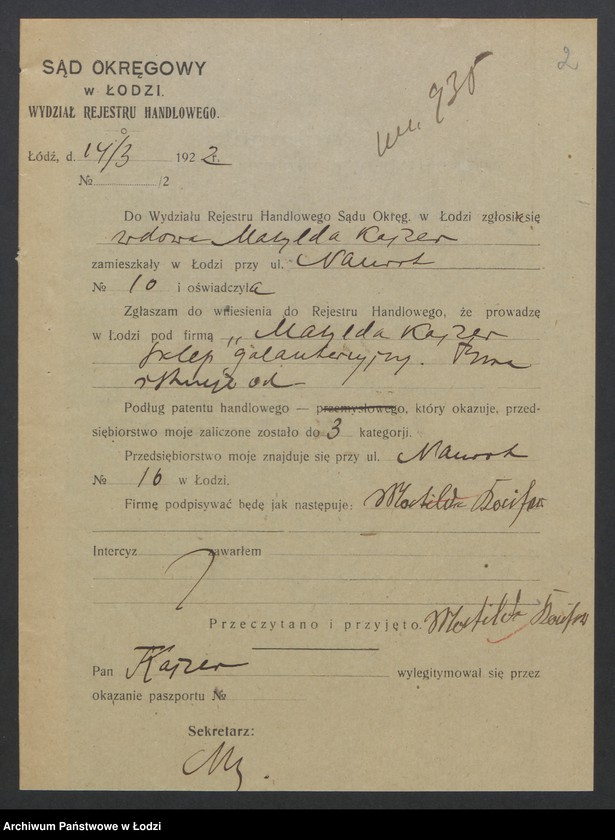 2
935
SĄD OKRĘGOWY
w ŁODZI.
WYDZIAŁ REJESTRU HANDLOWEGO.
Łódź, d. 14/3 1922 r.
№ /2
Do Wydziału Rejestru Handlowego Sądu Okręg. w Łodzi zgłosił się
wdowa Matylda Kajzer
zamieszkały w Łodzi przy ul. Nawrot
№ 10 i oświadczyła
Zgłaszam do wniesienia do Rejestru Handlowego, że prowadzę
w Łodzi pod firmą „Matylda Kajzer
sklep galanteryjny. Firma
istnieje od
Podług patentu handlowego — przemysłowego, który okazuje, przed-
siębiorstwo moje zaliczone zostało do 3 kategorji.
Przedsiębiorstwo moje znajduje się przy ul. Nawrot
№ 16 w Łodzi.
Firmę podpisywać będę jak następuje: Matilda
Intercyz zawarłem
Przeczytano i przyjęto. Matilda
Pan Kajzer wylegitymował się przez
okazanie paszportu №
Sekretarz:
Archiwum Państwowe w Łodzi